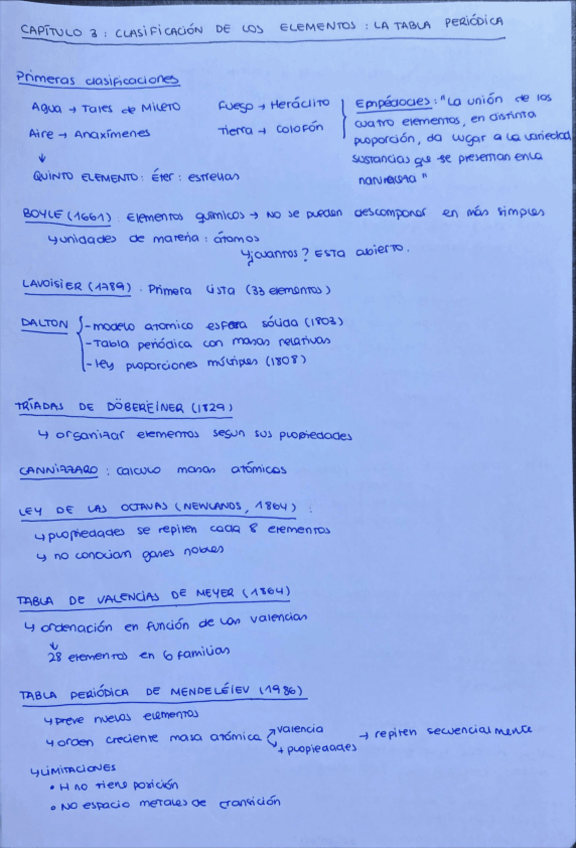 CAPÍTULO 3: CLASIFICACIÓN DE LOS ELEMENTOS: LA TABLA PERIÓDICA
Primeras clasificaciones
Agua → Tales de Mileto
Aire → Anaxímenes
↓
QUINTO ELEMENTO: Éter: estrellas
Fuego → Heráclito
Tierra → Colofón
Empédocles: "La unión de los
cuatro elementos, en distinta
proporción, da lugar a la variedad
sustancias que se presentan en la
naturaleza"
BOYLE (1661): Elementos químicos → No se pueden descomponer en más simples
↳ unidades de materia: átomos
↳ ¿cuantos? Esta abierto.
LAVOISIER (1789). Primera lista (33 elementos)
DALTON
- modelo atomico esfera sólida (1803)
- Tabla periódica con masas relativas
- Ley proporciones múltiples (1808)
TRÍADAS DE DÖBEREINER (1829)
↳ organizar elementos segun sus propiedades
CANNIZZARO: calculo masas atómicas
LEY DE LAS OCTAVAS (NEWLANDS, 1864):
↳ propiedades se repiten cada 8 elementos
↳ no conocian gases nobles
TABLA DE VALENCIAS DE MEYER (1864)
↳ ordenación en función de las valencias
↓
28 elementos en 6 familias
TABLA PERIÓDICA DE MENDELÉIEV (1986)
↳ preve nuevos elementos
↳ orden creciente masa atómica ↗ valencia
↘ + propiedades → repiten secuencialmente
↳ LIMITACIONES
• H no tiene posición
• NO espacio metales de transición